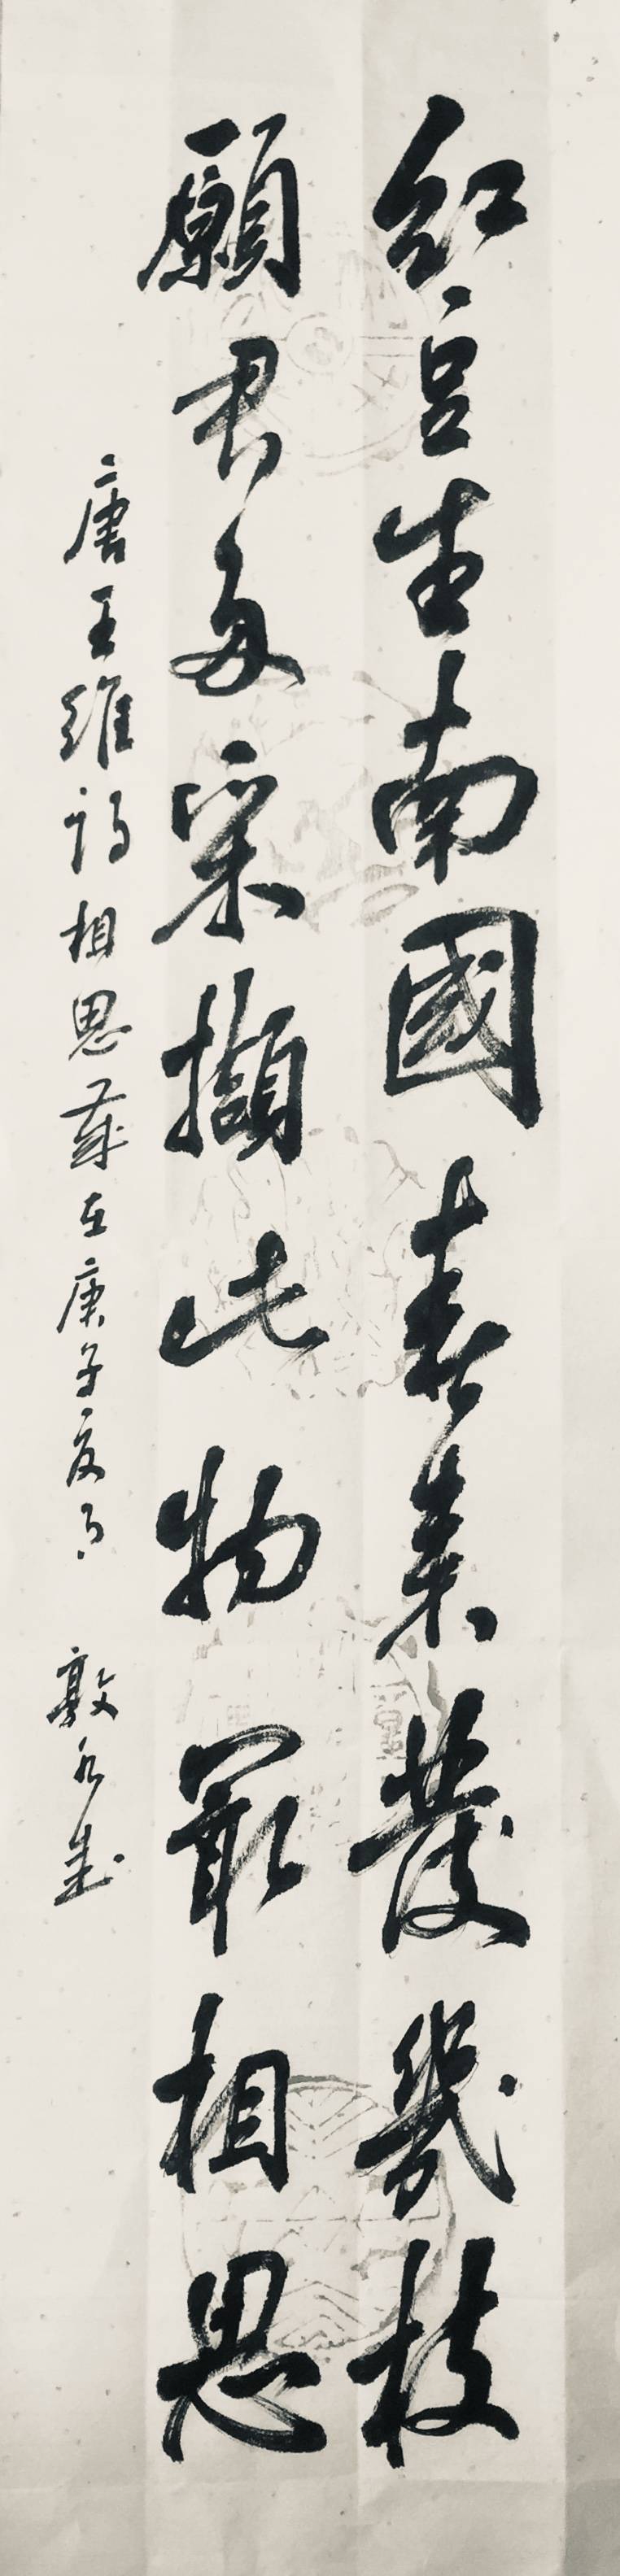 紅豆生南國春來發幾枝
願君多采擷此物最相思
唐王維詩相思歲在庚子夏月 敦